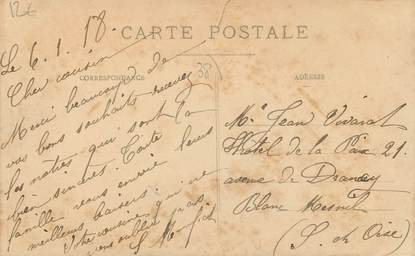 12€
CARTE POSTALE
CORRESPONDANCE
ADRESSE
38
Le 6.1.18.
Cher cousin
Merci beaucoup de
vos bons souhaits recevez
les notres qui sont
bien sincères. Toute la
famille vous envoie leurs
meilleurs baisers.
Votre cousine qui ne
vous oublie pas.
Mr Jean
Hôtel de la Paix 21.
avenue de Drancy
Blanc Mesnil
(S. et Oise)